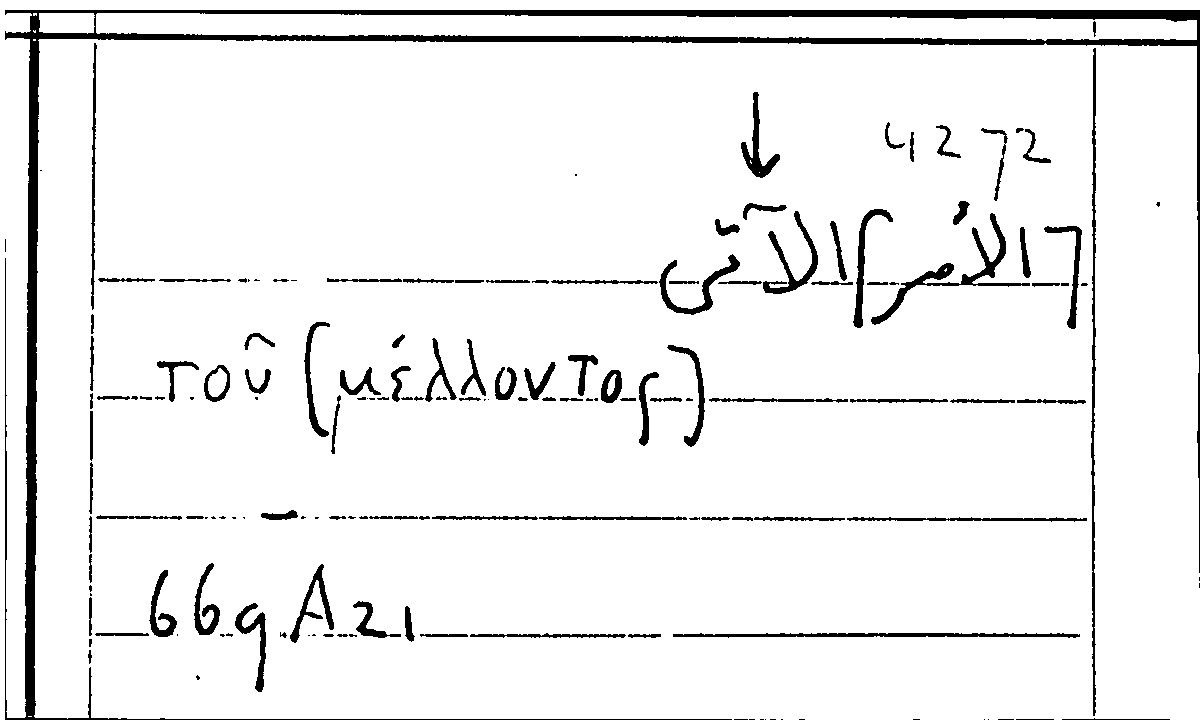 4272
⌈الأمر⌉ الآتى
τοῦ (μέλλοντος)
–
669 A 21